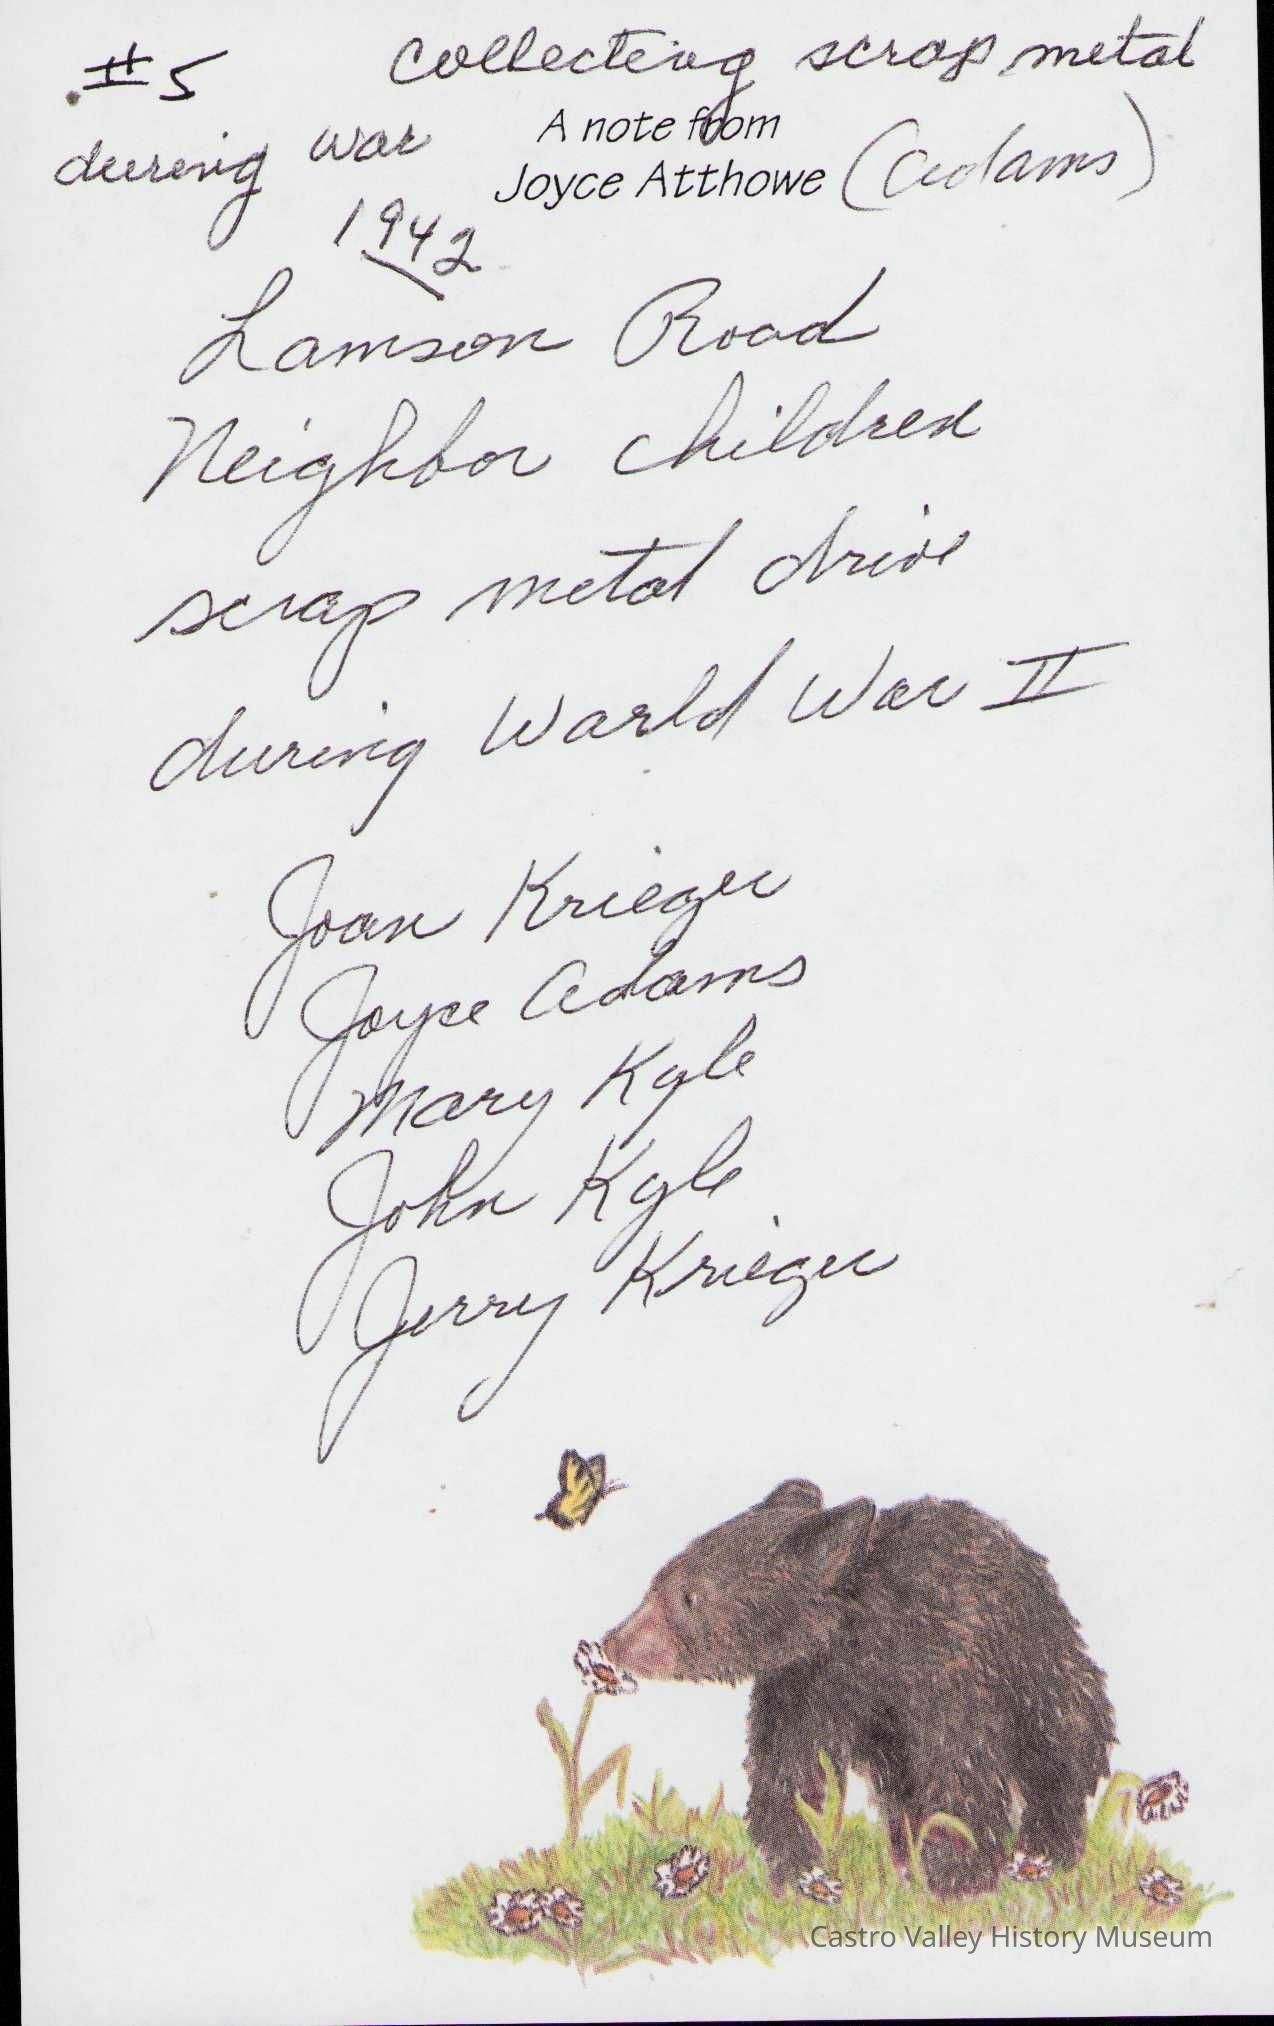 #5 Collecting scrap metal
during war
1942
A note from
Joyce Atthowe (Adams)
Lamson Road
Neighbor children
scrap metal drive
during World War II
Joan Krieger
Joyce Adams
Mary Kyle
John Kyle
Jerry Krieger
Castro Valley History Museum